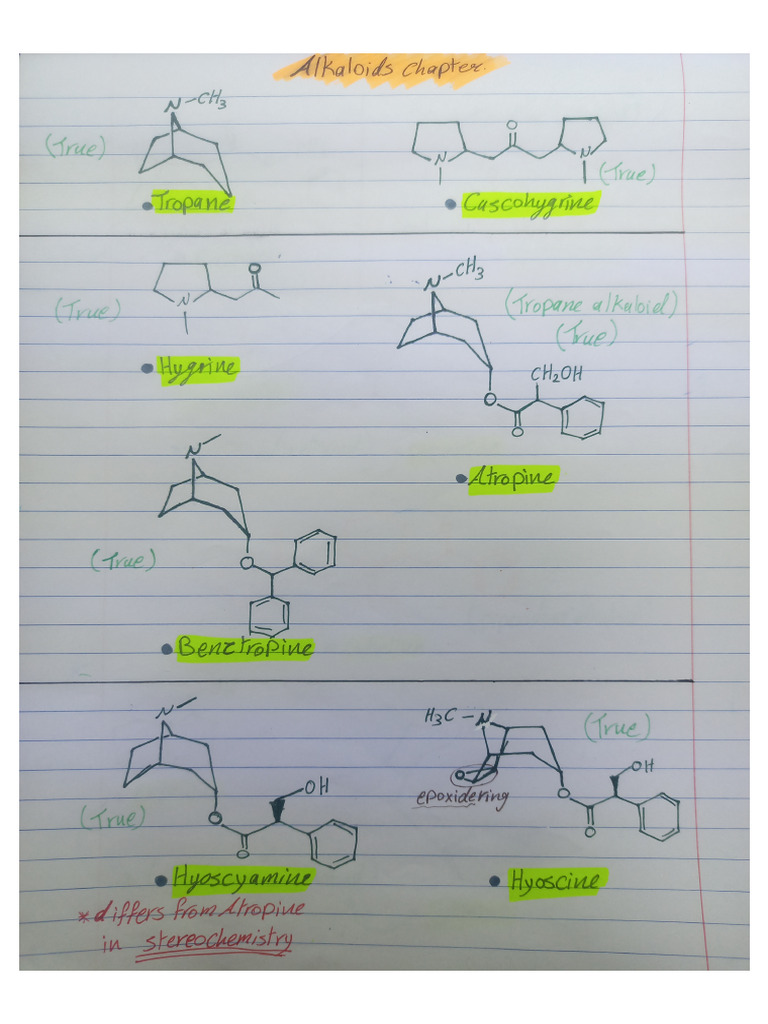 Alkaloids chapter.
N-CH3
(True)
• Tropane
O
N
N
(True)
• Cuscohygrine
O
N
(True)
• Hygrine
N-CH3
(Tropane alkaloid)
(True)
CH2OH
O
O
• Atropine
N
(True)
O
• Benztropine
N
OH
(True)
O
O
• Hyoscyamine
*differs from Atropine
in stereochemistry
H3C-N
(True)
O
OH
epoxidering
O
O
• Hyoscine